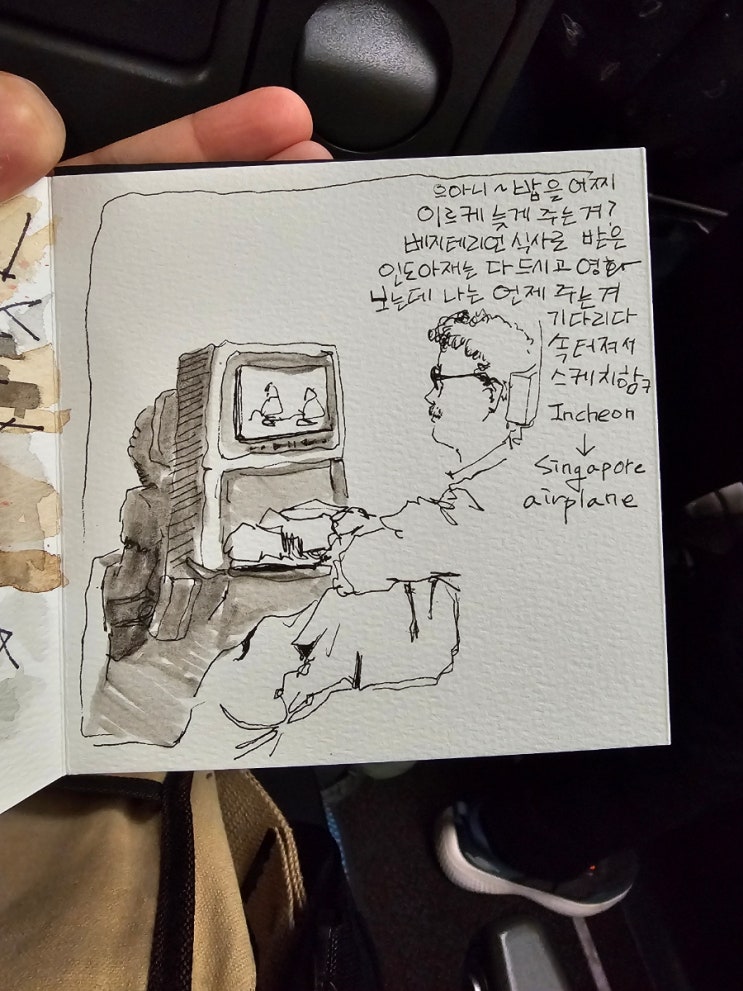 으아니~ 밥을 어찌
이르케 늦게 주는겨?
베지테리언 식사로 받은
인도아재는 다 드시고 영화
보는데 나는 언제 주는겨
기다리다
속터져서
스케치함ㅋ
Incheon
↓
Singapore
airplane